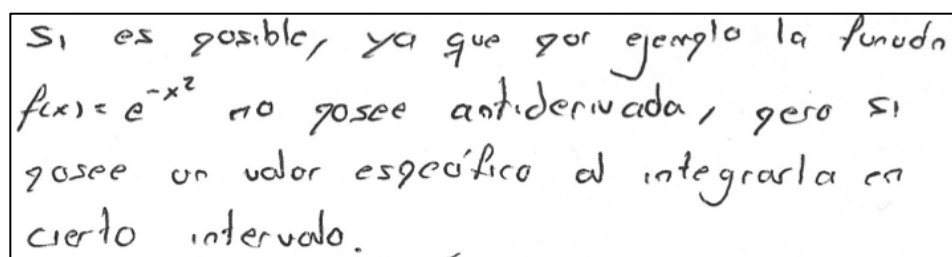 Si es posible, ya que por ejemplo la función
f(x) = e^{-x^2} no posee antiderivada, pero si
posee un valor específico al integrarla en
cierto intervalo.